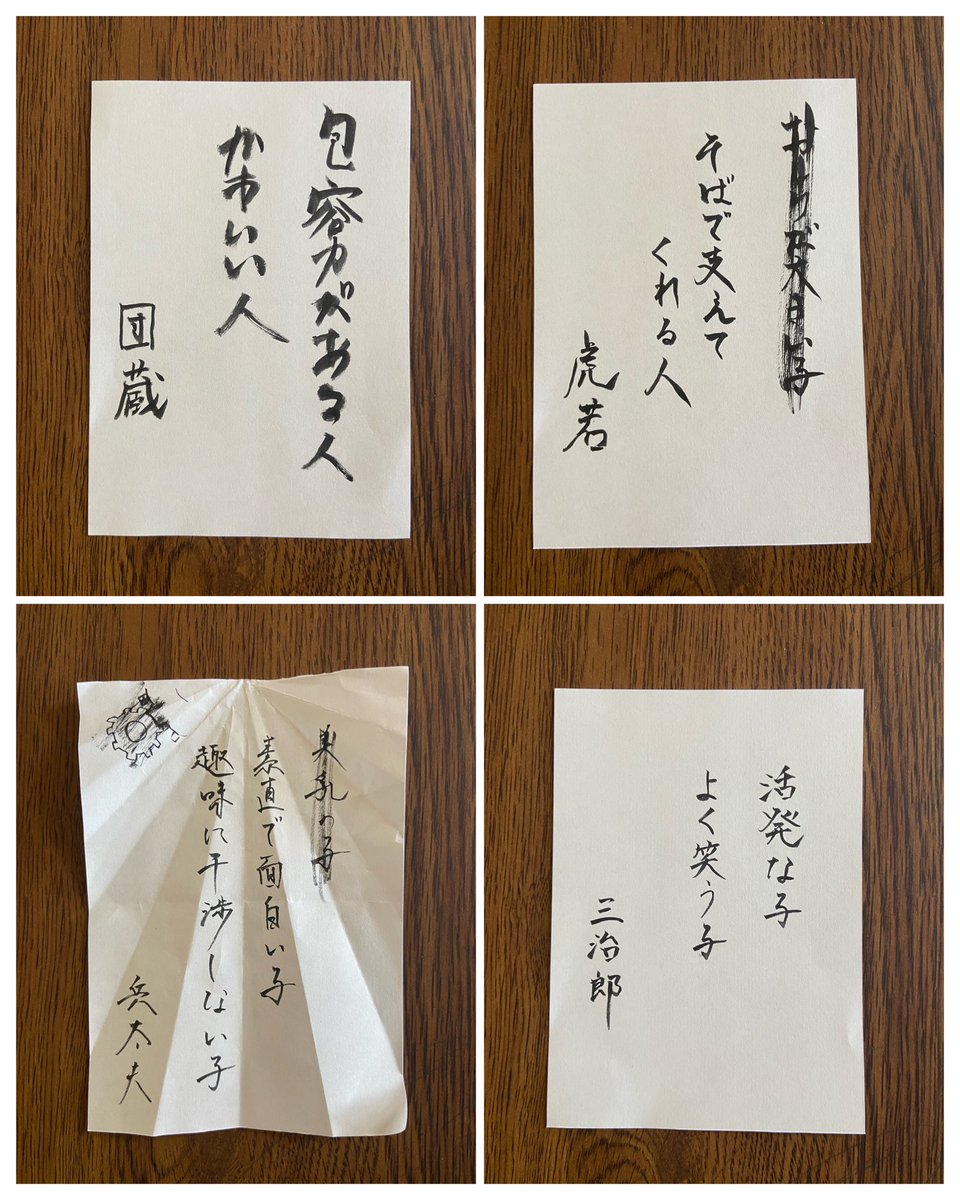 包容力がある人
かわいい人
団蔵
おしりが大きい子
そばで支えて
くれる人
虎若
美乳の子
素直で面白い子
趣味に干渉しない子
兵太夫
活発な子
よく笑う子
三治郎